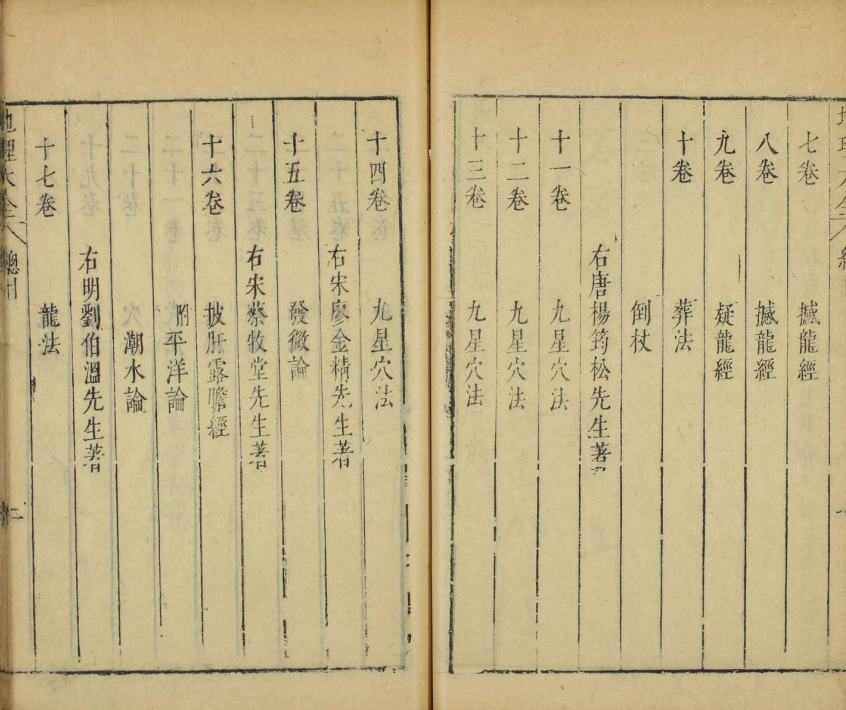 七卷 撼龍經
八卷 撼龍經
九卷 疑龍經
十卷 葬法
倒杖
右唐楊筠松先生著
十一卷 九星穴法
十二卷 九星穴法
十三卷 九星穴法
十四卷 九星穴法
右宋廖金精先生著
十五卷 發微論
右宋蔡牧堂先生著
十六卷 披肝露膽經
附平洋論
潮水論
右明劉伯溫先生著
十七卷 龍法
地理大全 總 二